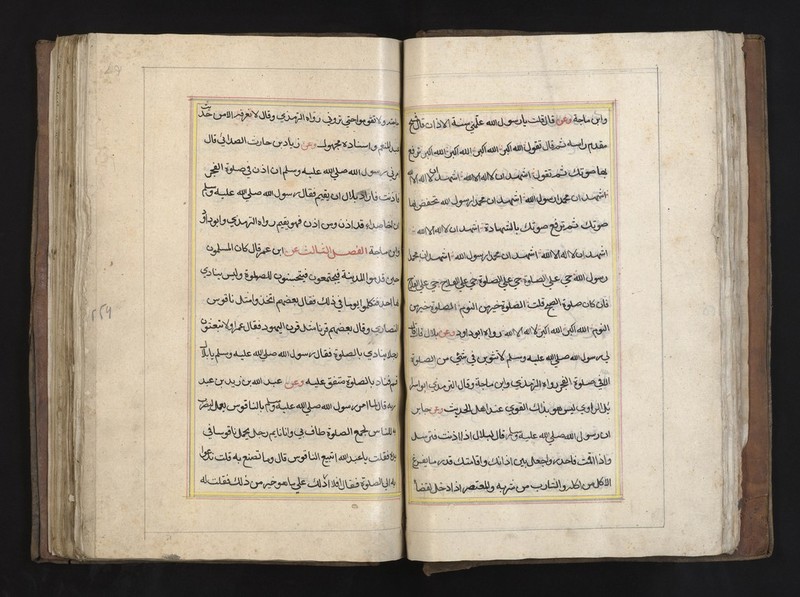 وابن ماجة وعن قال قلت يا رسول الله علمني سنة الاذان قال فمسح
مقدم راسه ثم قال تقول الله اكبر الله اكبر الله اكبر الله اكبر ترفع
بها صوتك ثم تقول اشهد ان لا اله الا الله اشهد ان لا اله الا الله
اشهد ان محمدا رسول الله اشهد ان محمدا رسول الله تخفض بها
صوتك ثم ترفع صوتك بالشهادة اشهد ان لا اله الا الله
اشهد ان لا اله الا الله اشهد ان محمدا رسول الله اشهد ان محمدا
رسول الله حي على الصلوة حي على الصلوة حي على الفلاح حي على الفلاح
فان كان صلوة الصبح قلت الصلوة خير من النوم الصلوة خير من
النوم الله اكبر الله اكبر لا اله الا الله رواه ابو داود وعن بلال قال قال
لي رسول الله صلى الله عليه وسلم لا تثوبن في شئ من الصلوة
الا في صلوة الفجر رواه الترمذي وابن ماجة وقال الترمذي ابو اسرا
ئيل الراوي ليس هو بذلك القوي عند اهل الحديث وعن جابر
ان رسول الله صلى الله عليه وسلم قال لبلال اذا اذنت فترسل
واذا اقمت فاحدر واجعل بين اذانك واقامتك قدر ما يفرغ
الآكل من اكله والشارب من شربه والمعتصر اذا دخل لقضاء
حاجته ولا تقوموا حتى تروني رواه الترمذي وقال لا نعرفه الا من حديث
عبد المنعم واسناده مجهول وعن زياد بن حارث الصدائي قال
امرني رسول الله صلى الله عليه وسلم ان اذن في صلوة الفجر
فاذنت فاراد بلال ان يقيم فقال رسول الله صلى الله عليه وسلم
ان اخا صداء قد اذن ومن اذن فهو يقيم رواه الترمذي وابو داود
وابن ماجة الفصل الثالث عن ابن عمر قال كان المسلمون
حين قدموا المدينة يجتمعون فيتحينون للصلوة وليس ينادي
بها احد فتكلموا يوما في ذلك فقال بعضهم اتخذوا مثل ناقوس
النصارى وقال بعضهم قرنا مثل قرن اليهود فقال عمر اولا تبعثون
رجلا ينادي بالصلوة فقال رسول الله صلى الله عليه وسلم يا بلال
قم فناد بالصلوة متفق عليه وعن عبد الله بن زيد بن عبد
ربه قال لما امر رسول الله صلى الله عليه وسلم بالناقوس يعمل ليضرب
به للناس لجمع الصلوة طاف بي وانا نايم رجل يحمل ناقوسا في
يده فقلت يا عبد الله اتبيع الناقوس قال وما تصنع به قلت ندعوا
به الى الصلوة فقال افلا ادلك على ما هو خير من ذلك فقلت له